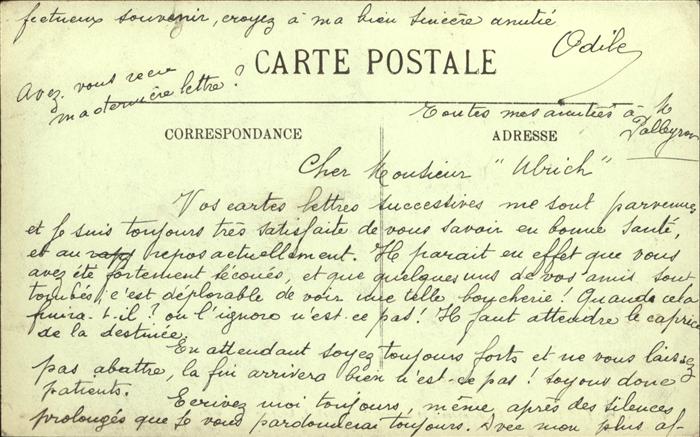 fectueux souvenir, croyez à ma bien sincère amitié
Odile
CARTE POSTALE
Avez-vous reçu
ma dernière lettre ?
Toutes mes amitiés à M
CORRESPONDANCE
ADRESSE
Cher Monsieur "Ulrich"
Vos cartes lettres successives me sont parvenues
et je suis toujours très satisfaite de vous savoir en bonne santé,
et au repos actuellement. Il parait en effet que vous
avez été fortement secoués, et que quelques uns de vos amis sont
tombés, c'est déplorable de voir une telle boucherie ! Quand cela
finira-t-il ? on l'ignore n'est-ce pas ! Il faut attendre le caprice
de la destinée.
En attendant soyez toujours forts et ne vous laissez
pas abattre, la fin arrivera bien n'est-ce pas ! soyons donc
patients.
Ecrivez moi toujours, même après des silences
prolongés que je vous pardonnerai toujours. Avec mon plus af-